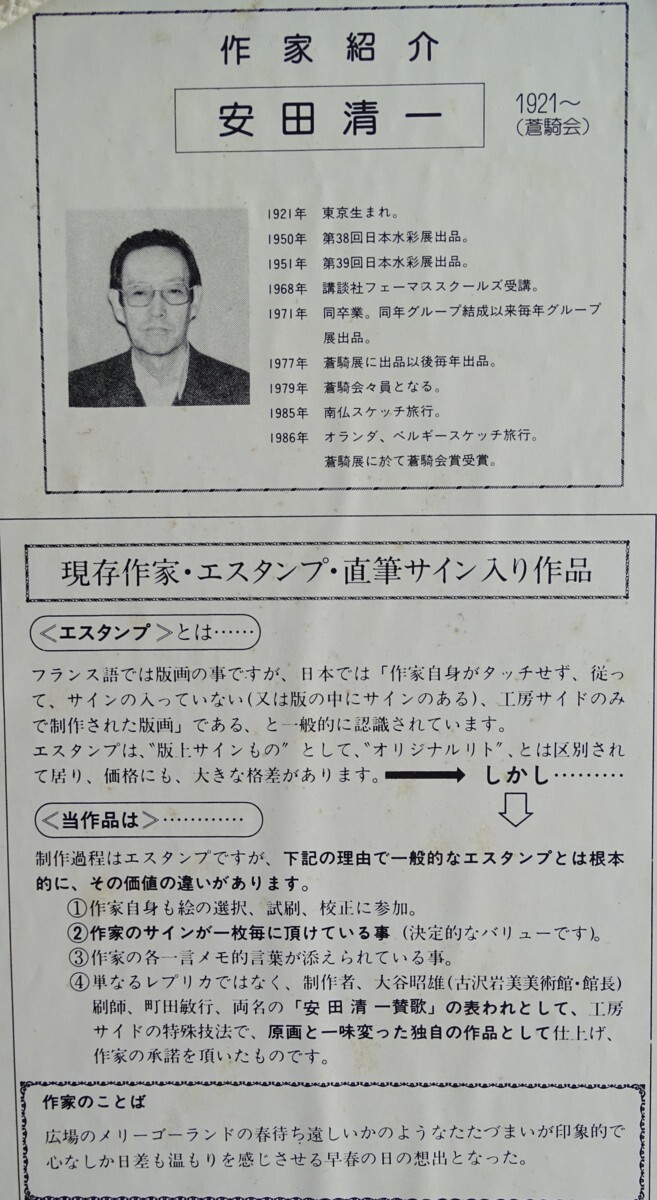 作家紹介
安田清一
1921～
(蒼騎会)
1921年 東京生まれ。
1950年 第38回日本水彩展出品。
1951年 第39回日本水彩展出品。
1968年 講談社フェーマススクールズ受講。
1971年 同卒業。同年グループ結成以来毎年グループ
展出品。
1977年 蒼騎展に出品以後毎年出品。
1979年 蒼騎会々員となる。
1985年 南仏スケッチ旅行。
1986年 オランダ、ベルギースケッチ旅行。
蒼騎展に於て蒼騎会賞受賞。
現存作家・エスタンプ・直筆サイン入り作品
≪エスタンプ≫とは……
フランス語では版画の事ですが、日本では「作家自身がタッチせず、従っ
て、サインの入っていない(又は版の中にサインのある)、工房サイドのみ
で制作された版画」である、と一般的に認識されています。
エスタンプは、〝版上サインもの〟として、〝オリジナルリト〟、とは区別され
て居り、価格にも、大きな格差があります。➡ しかし………
≪当作品は≫…………
制作過程はエスタンプですが、下記の理由で一般的なエスタンプとは根本
的に、その価値の違いがあります。
①作家自身も絵の選択、試刷、校正に参加。
②作家のサインが一枚毎に頂けている事(決定的なバリューです)。
③作家の各一言メモ的言葉が添えられている事。
④単なるレプリカではなく、制作者、大谷昭雄(古沢岩美美術館・館長)
刷師、町田敏行、両名の「安田清一賛歌」の表われとして、工房
サイドの特殊技法で、原画と一味変った独自の作品として仕上げ、
作家の承諾を頂いたものです。
作家のことば
広場のメリーゴーランドの春待ち遠しいかのようなたたづまいが印象的で
心なしか日差も温もりを感じさせる早春の日の想出となった。